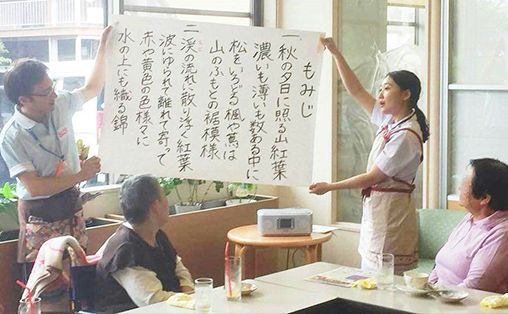 もみじ
一 秋の夕日に照る山紅葉
濃いも薄いも数ある中に
松をいろどる楓や蔦は
山のふもとの裾模様
二 渓の流れに散り浮く紅葉
波にゆられて離れて寄って
赤や黄色の色様々に
水の上にも織る錦